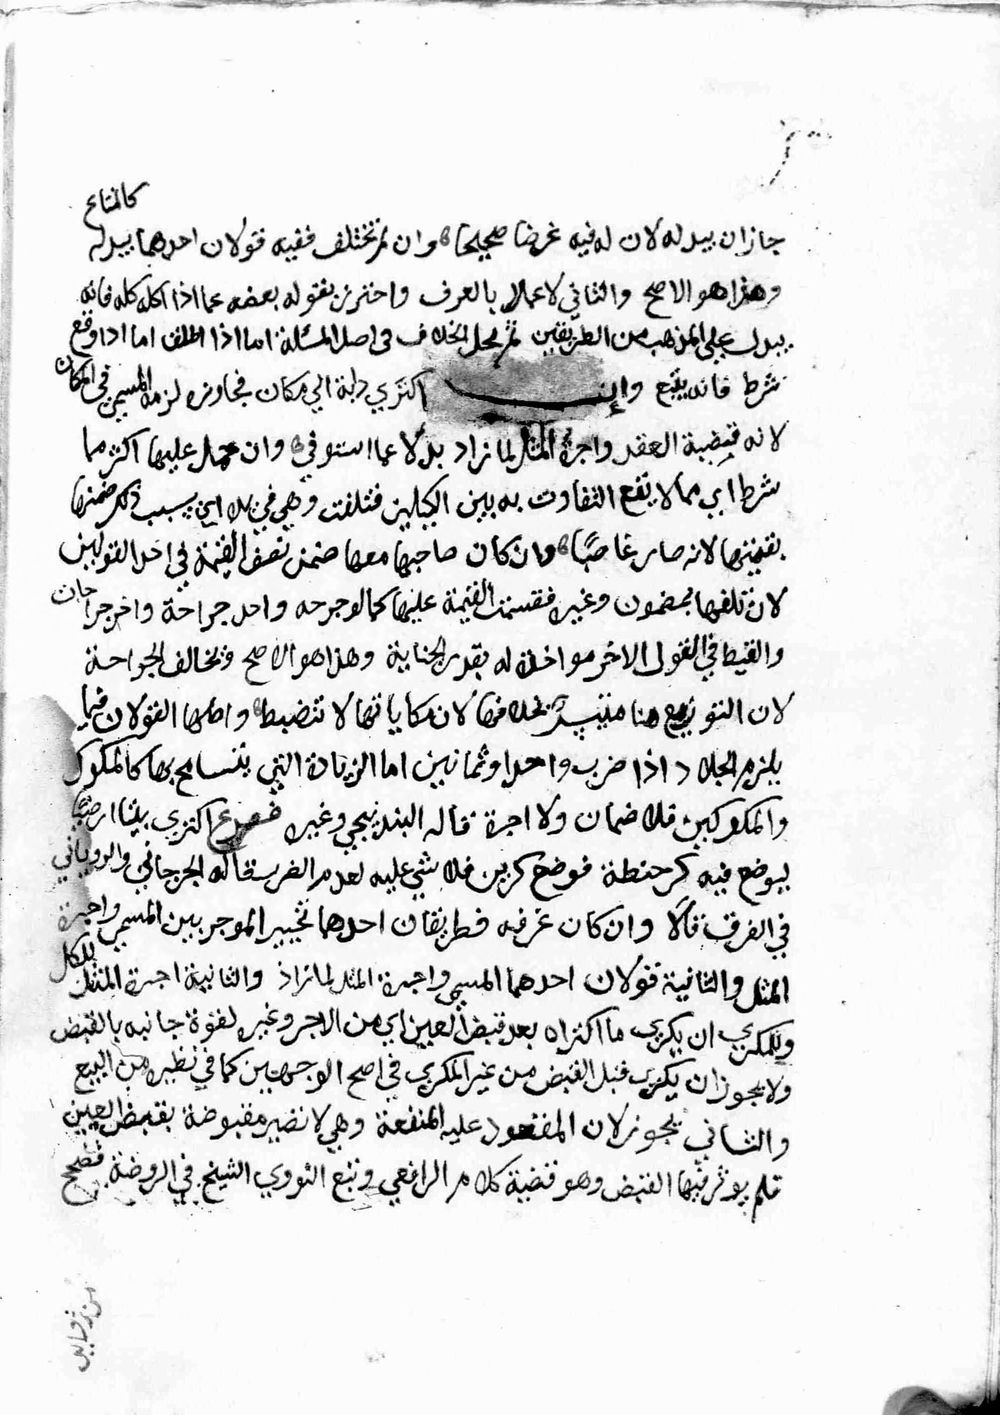 كالمتاع
جاز ان يبدله لان له فيه غرضا صحيحا وان لم تختلف ففيه قولان احدهما يبدله
وهذا هو الاصح والثاني لا عملا بالعرف واحترز بقوله بعضه عما اذا اكل كله فانه
يبدل على المذهب من الطريقين ثم محل الخلاف في اصل المسئلة اما اذا اطلق اما اذا وقع
شرط فانه يتبع وان اكتري دابة الي مكان فجاوزه لزمه المسمي في المكان
لانه قضية العقد واجرة المثل لما زاد بدلا عما استوفي وان حمل عليها اكثر مما
شرط اي مما لا يقع التفاوت به بين الكيلين فتلفت وهي في يده اي بسبب ذلك ضمنها
بقيمتها لانه صار غاصبًا وان كان صاحبها معها ضمن نصف القيمة في احد القولين
لان تلفها بمضمون وغيره فقسمت القيمة عليها كما لو جرحه واحد جراحة واخر جراحات
والقسط في القول الاخر مواخذة له بقدر الجناية وهذا هو الاصح وتخالف الجراحة
لان التوزيع هنا متيسر بخلافها لان نكاياتها لا تنضبط واصلها القولان فيما
يلزم الجلاد اذا ضرب واحدا وثمانين اما الزيادة التي يتسامح بها كالمكوك
والمكوكين فلا ضمان ولا اجرة قاله البندنيجي وغيره فرع اكتري بيتا ارضيا
ليوضع فيه كر حنطة فوضع كرين فلا شي عليه لعدم الضرر قاله الجرجاني والروياني
في الفرق قالا وان كان غرفه فطريقان احدهما تخيير الموجر بين المسمي واجرة
المثل والثانية قولان احدهما المسمي واجرة المثل لما زاد والثانية اجرة المثل للكل
وللمكتري ان يكري ما اكتراه بعد قبض العين اي من الاجر وغيره لقوة جانبه بالقبض
ولا يجوز ان يكري قبل القبض من غير المكري في اصح الوجهين كما في نظيره من البيع
والثاني يجوز لان المعقود عليه المنفعة وهي لا تصير مقبوضة بقبض العين
فلم يوثر فيها القبض وهو قضية كلام الرافعي وتبع النووي الشيخ في الروضة فصحح